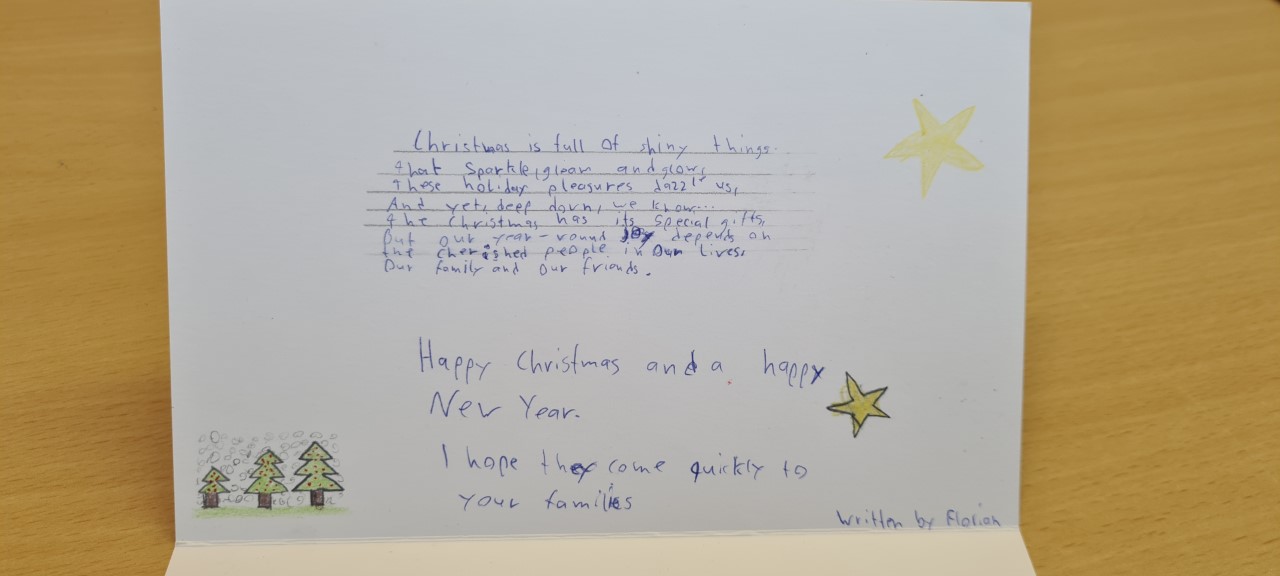 Christmas is full of shiny things.
that sparkle, gleam and glow,
these holiday pleasures dazzle us,
And yet, deep down, we know...
the Christmas has its special gifts,
But our year-round joy depends on
the cherished people in our lives,
Our family and our friends.
Happy Christmas and a happy
New Year.
I hope they come quickly to
your families
Written by Florian